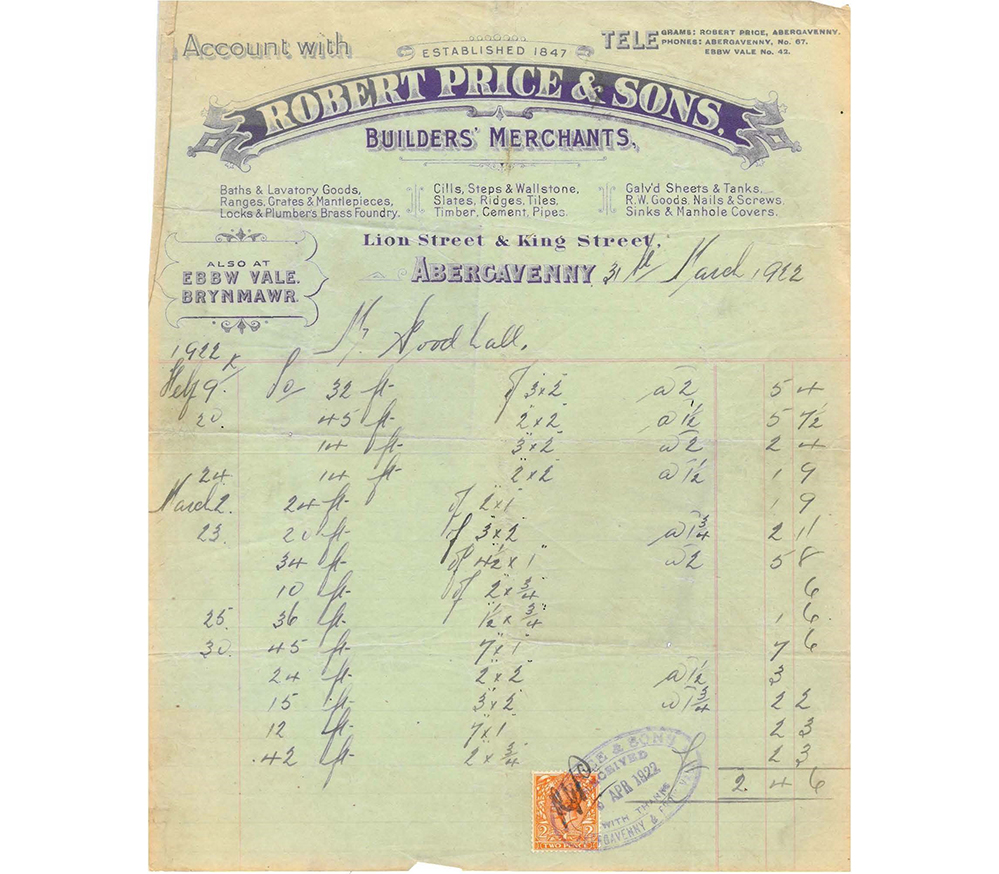 Account with
ESTABLISHED 1847
TELEGRAMS: ROBERT PRICE, ABERGAVENNY.
PHONES: ABERGAVENNY, No. 67.
EBBW VALE No. 42.
ROBERT PRICE & SONS.
BUILDERS' MERCHANTS,
Baths & Lavatory Goods,
Ranges, Grates & Mantlepieces,
Locks & Plumbers Brass Foundry.
Cills, Steps & Wallstone,
Slates, Ridges, Tiles,
Timber, Cement, Pipes.
Galv'd Sheets & Tanks.
R.W. Goods, Nails & Screws.
Sinks & Manhole Covers.
Lion Street & King Street,
ALSO AT
EBBW VALE.
BRYNMAWR.
ABERGAVENNY 31st March 1922
Mr Goodhall.
1922
9 To 32 ft of 3"x2" @ 2 5 4
20. 45 ft 2"x2" @ 1½ 5 7½
14 ft 3"x2" @ 2 2 4
24 14 ft 2"x2" @ 1½ 1 9
March 2. 24 ft of 2"x1" 1 9
23. 20 ft of 3"x2" @ 1¾ 2 11
34 ft of 4½"x1" @ 2 5 8
10 ft of 2"x¾" 6
25. 36 ft ½"x¾" 1 6
30. 45 ft 7"x1" 7 6
24 ft 2"x2" @ 1½ 3
15 ft 3"x2" @ 1¾ 2 2
12 ft 7"x1" 2 3
42 ft 2"x¾" 2 3
2. 4 6
RECEIVED
APR 1922
WITH THANKS
TWO PENCE